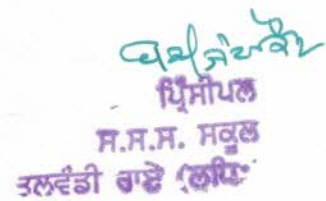 ਪ੍ਰਿੰਸੀਪਲ
ਸ.ਸ.ਸ. ਸਕੂਲ
ਤਲਵੰਡੀ ਰਾਏ (ਲੁਧਿ: